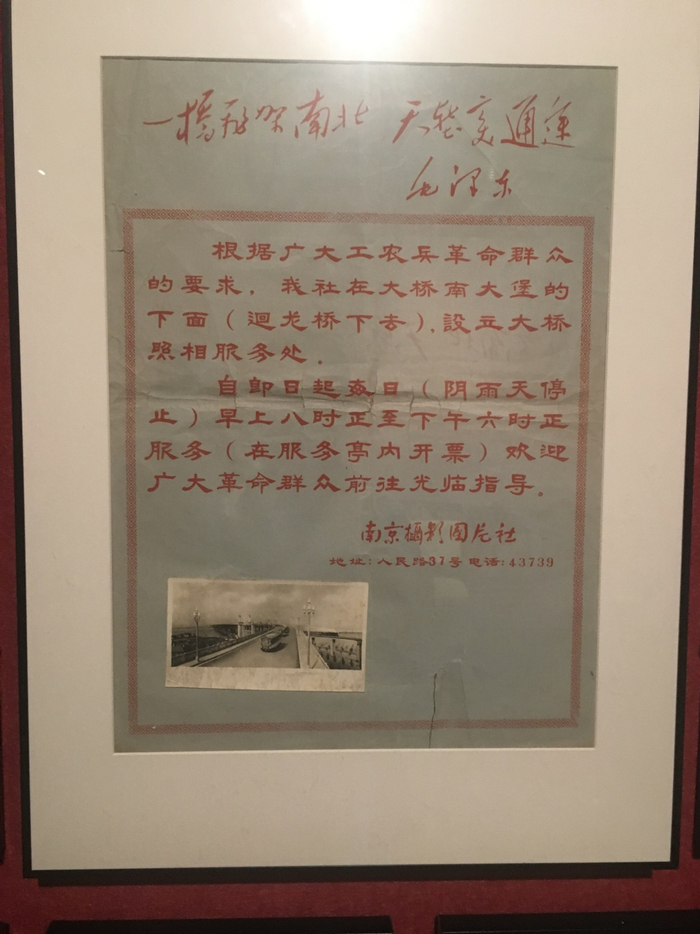 一桥飞架南北 天堑变通途
毛泽东
根据广大工农兵革命群众
的要求，我社在大桥南大堡的
下面（迴龙桥下去），設立大桥
照相服务处．
自即日起每日（阴雨天停
止）早上八时正至下午六时正
服务（在服务亭内开票）欢迎
广大革命群众前往光临指导．
南京攝影图片社
地址：人民路37号电话：43739